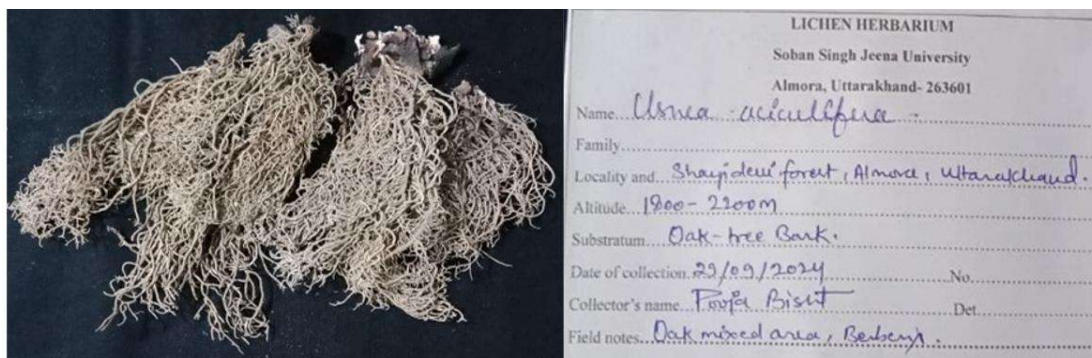 LICHEN HERBARIUM
Soban Singh Jeena University
Almora, Uttarakhand- 263601
Name Usnea aciculifera
Family
Locality and Shayidevi forest, Almora, Uttarakhand.
Altitude 1800-2200m
Substratum Oak-tree Bark.
Date of collection 29/09/2024 No
Collector's name Pooja Bisht Det
Field notes Oak mixed area,